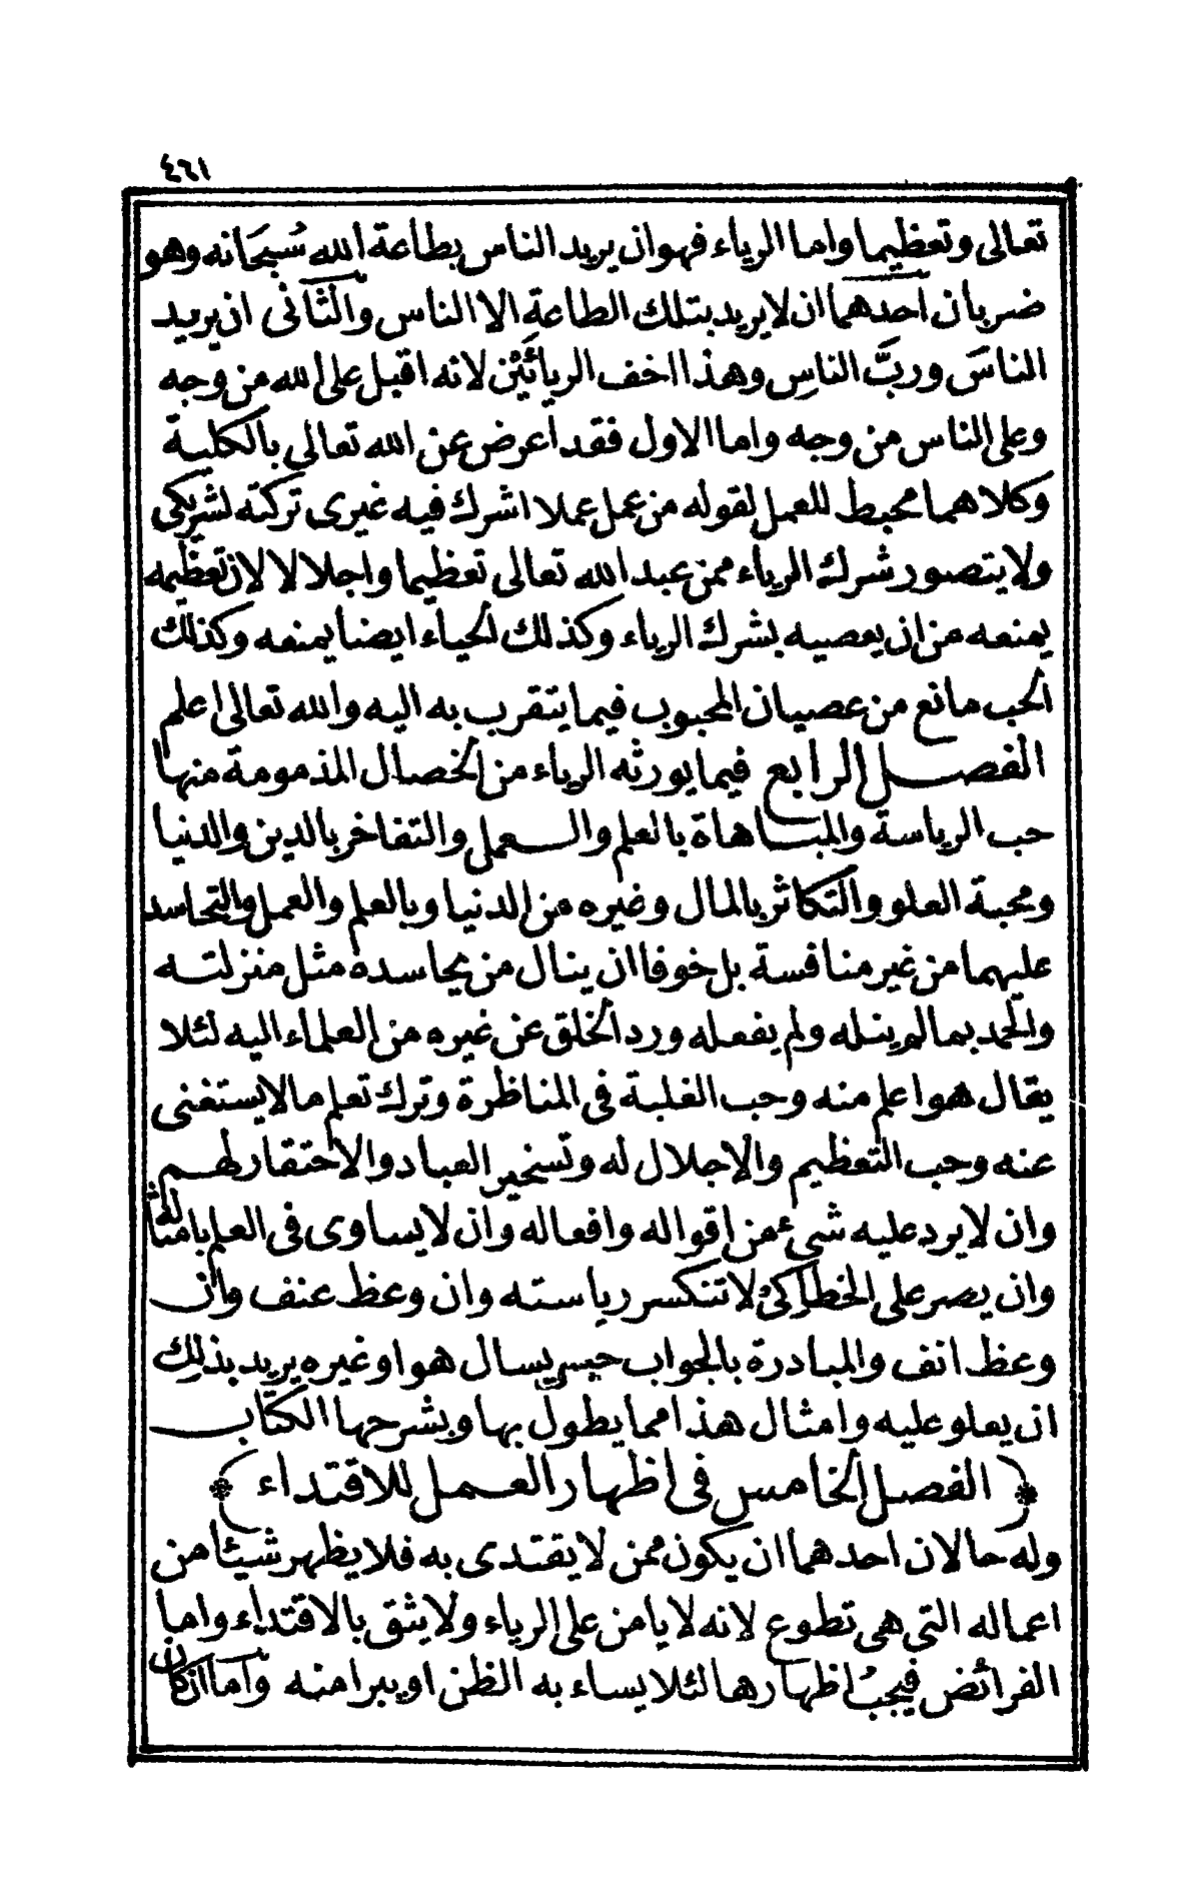 ٤٦١
تعالى وتعظيما واما الرياء فهو ان يريد الناس بطاعة الله سُبحَانه وهو
ضربان احدهما ان لا يريد بتلك الطاعة الا الناس والثانى ان يريد
الناسَ وربَّ الناسِ وهذا اخف الريائَيْن لانه اقبل على الله من وجه
وعلى الناس من وجه واما الاول فقد اعرض عن الله تعالى بالكلية
وكلاهما محبط للعمل لقوله من عمل عملا اشرك فيه غيرى تركته لشريكى
ولا يتصور شرك الرياء ممن عبد الله تعالى تعظيما واجلالا لان تعظيمه
يمنعه من ان يعصيه بشرك الرياء وكذلك الحياء ايضا يمنعه وكذلك
الحب مانع من عصيان المحبوب فيما يتقرب به اليه والله تعالى اعلم
الفصل الرابع فيما يورثه الرياء من الخصال المذمومة منها
حب الرياسة والمباهاة بالعلم والعمل والتفاخر بالدين والدنيا
ومحبة العلو والتكاثر بالمال وغيره من الدنيا وبالعلم والعمل والتحاسد
عليهما من غير منافسة بل خوفا ان ينال من يحاسده مثل منزلته
والحمد بما لم ينله ولم يفعله ورد الخلق عن غيره من العلماء اليه لئلا
يقال هو اعلم منه وحب الغلبة فى المناظرة وترك تعلم ما لا يستغنى
عنه وحب التعظيم والاجلال له وتسخير العباد والاحتقار لهم
وان لا يرد عليه شئ من اقواله وافعاله وان لا يساوى فى العلم بامثاله
وان يصر على الخطا كىْ لا تنكسر رياسته وان وعظ عنف وان
وعظ انف والمبادرة بالجواب حين يسال هو او غيره يريد بذلك
ان يعلو عليه وامثال هذا مما يطول بها وبشرحها الكتاب
﴿ الفصل الخامس فى اظهار العمل للاقتداء ﴾
وله حالان احدهما ان يكون ممن لا يقتدى به فلا يظهر شيئا من
اعماله التى هى تطوع لانه لا يامن على الرياء ولا يثق بالاقتداء واما
الفرائض فيجبُ اظهارها لئلا يساء به الظن او يبرا منه واما ان كان